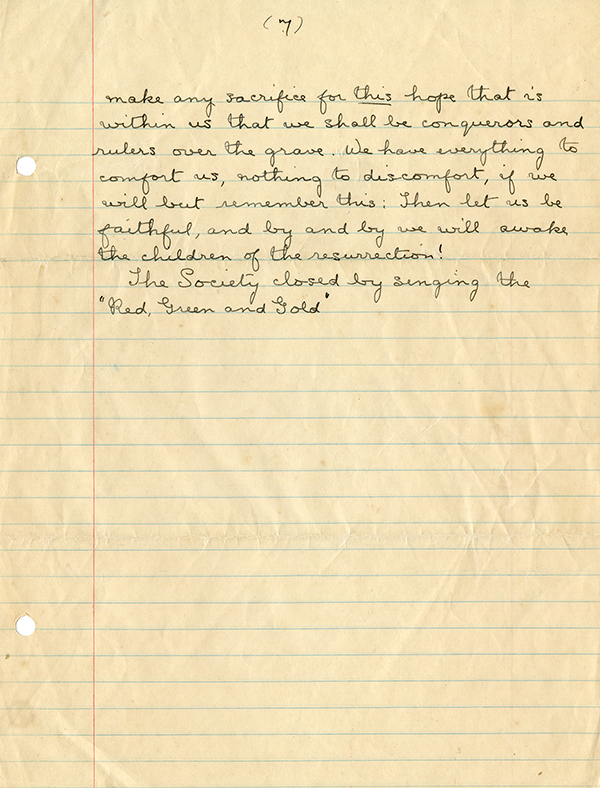 (7)
make any sacrifice for this hope that is
within us that we shall be conquerors and
rulers over the grave. We have everything to
comfort us, nothing to discomfort, if we
will but remember this: Then let us be
faithful, and by and by we will awake
the children of the resurrection!
The Society closed by singing the
"Red, Green and Gold"